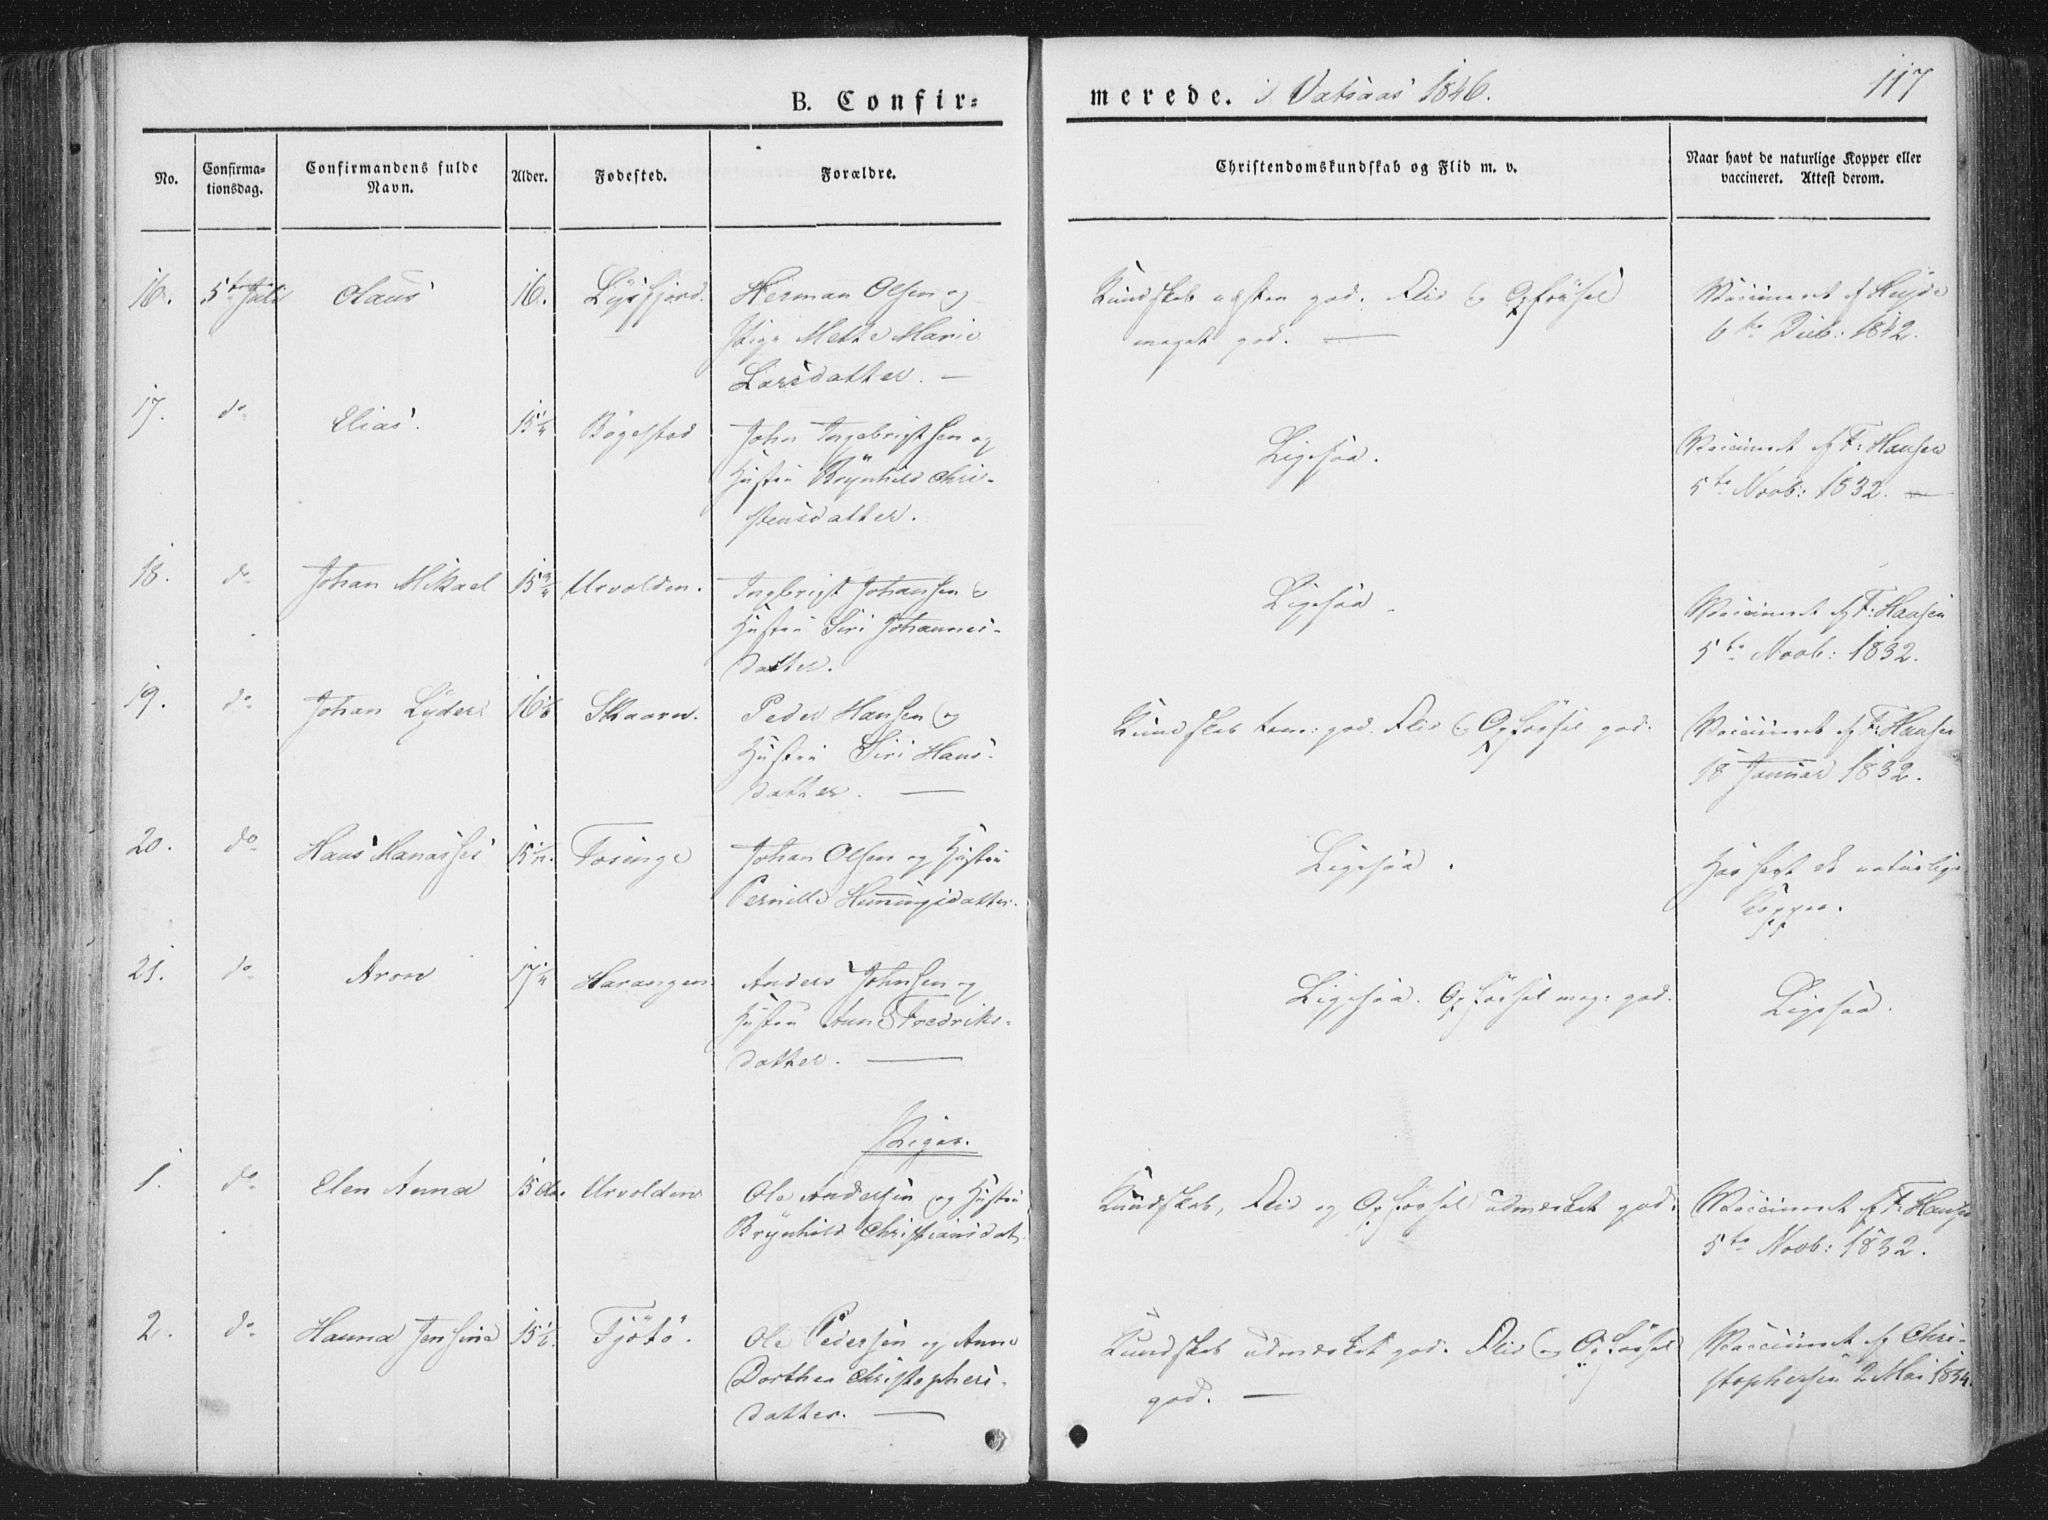 B. Confir=
merede. i Vatsaas 1846.
117
No.
Confirma-
tionsdag.
Confirmandens fulde
Navn.
Alder.
Fødested.
Forældre.
Christendomskundskab og Flid m. v.
Naar havt de naturlige Kopper eller
vaccineret. Attest derom.
16. 5te Juli Olaus 16. Herman Olsen og
Pige Mette Marie
Larsdatter. —
Kundskab næsten god. Flid og Opførsel
meget god. —
Vaccineret af Heyde
6te Decb: 1842.
17. do Elias. 15 1/4 Bøgestad John Ingebrigtsen og
Hustru Brynhild Chri-
stensdatter.
Ligesaa.
Vaccineret af F: Hansen
5te Novb: 1832. —
18. do Johan Mikael 15 3/4 Urvolden. Ingebrigt Johansen og
Hustru Siri Johannes-
datter.
Ligesaa.
Vaccineret af F: Hansen
5te Novb: 1832.
19. do Johan Lyder 16 Skaarn. Peder Hansen og
Hustru Siri Hans-
datter. —
Kundskab tem: god. Flid og Opførsel god.
Vaccineret af F: Hansen
18 Januar 1832.
20. do Hans Manasses 15 1/2. Johan Olsen og Hustru
Pernille Henningsdatter.
Ligesaa.
Har havt de naturlige
Kopper.
21. do Aron 17 1/4 Harangen. Anders Johnsen og
Hustru Anne Fredriks-
datter. —
Ligesaa. Opførsel meg: god.
Ligesaa.
Piger.
1. do Elen Anna 15 Aar Urvolden Ole Andersen og Hustru
Brynhild Christiansdat.
Kundskab, Flid og Opførsel udmærket god.
Vaccineret af F: Hansen
5te Novb: 1832.
2. do Hanna Jensine 15 Tjøtø. Ole Pedersen og Anne
Dorthea Christophers-
datter. —
Kundskab udmærket god. Flid og Opførsel
god. —
Vaccineret af Chri-
stophersen 2 Mai 1834.